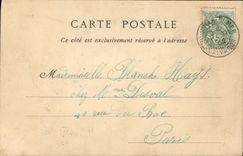 CARTE POSTALE
Ce côté est exclusivement réservé à l'adresse
Mademoiselle Blanche Hays
chez Mme Duval
rue du Bac
Paris